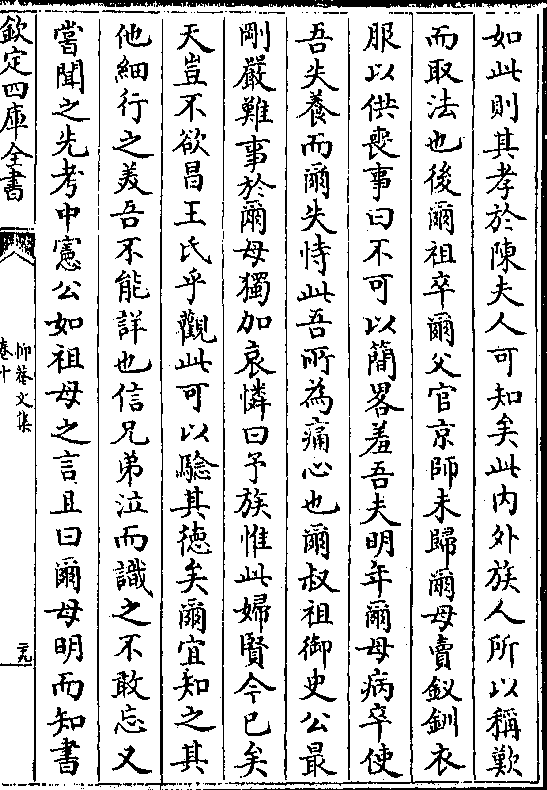 如此則其孝於陳夫人可知矣此内外族人所以稱歎
而取法也後爾祖卒爾父官京師未歸爾母賣釵釧衣
服以供喪事曰不可以簡畧羞吾夫明年爾母病卒使
吾失養而爾失恃此吾所為痛心也爾叔祖御史公最
剛嚴難事於爾母獨加哀憐曰予族惟此婦賢今已矣
天豈不欲昌王氏乎觀此可以驗其徳矣爾宜知之其
他細行之美吾不能詳也信兄弟泣而識之不敢忘又
嘗聞之先考中憲公如祖母之言且曰爾母明而知書
欽定四庫全書
卷十
文集
二九